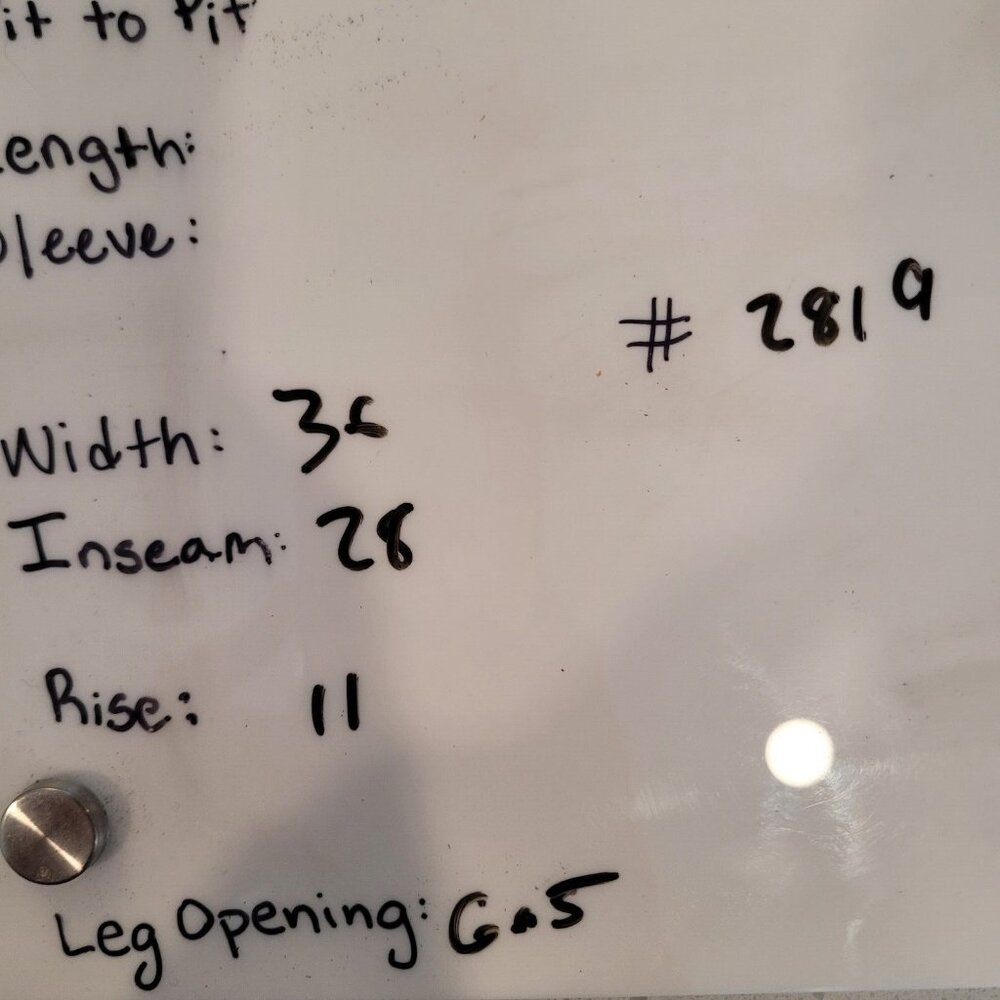 it to Pit
Length:
Sleeve:
# 2819
Width: 36
Inseam: 28
Rise: 11
Leg Opening: 6.5